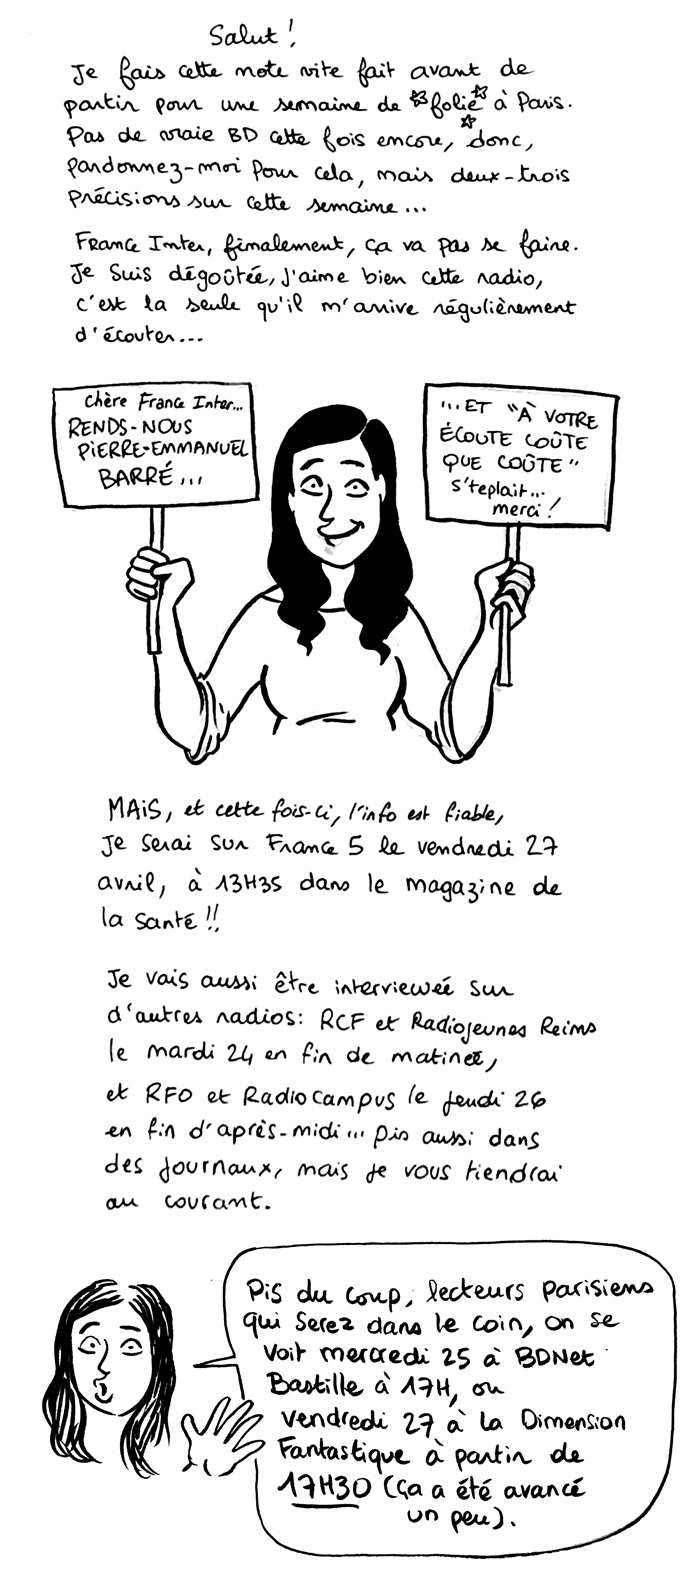 Salut !
Je fais cette note vite fait avant de
partir pour une semaine de folie à Paris.
Pas de vraie BD cette fois encore, donc,
pardonnez-moi pour cela, mais deux-trois
précisions sur cette semaine...
France Inter, finalement, ça va pas se faire.
Je suis dégoûtée, j'aime bien cette radio,
c'est la seule qu'il m'arrive régulièrement
d'écouter...
chère France Inter...
RENDS-NOUS
PIERRE-EMMANUEL
BARRÉ...
...ET "À VOTRE
ÉCOUTE COÛTE
QUE COÛTE"
s'teplait...
merci !
MAIS, et cette fois-ci, l'info est fiable,
Je serai sur France 5 le vendredi 27
avril, à 13H35 dans le magazine de
la santé !!
Je vais aussi être intervieweé sur
d'autres radios: RCF et Radiojeunes Reims
le mardi 24 en fin de matinée,
et RFO et Radiocampus le jeudi 26
en fin d'après-midi... pis aussi dans
des journaux, mais je vous tiendrai
au courant.
Pis du coup, lecteurs parisiens
qui serez dans le coin, on se
voit mercredi 25 à BDNet
Bastille à 17H, ou
vendredi 27 à la Dimension
Fantastique à partir de
17H30 (ça a été avancé
un peu).